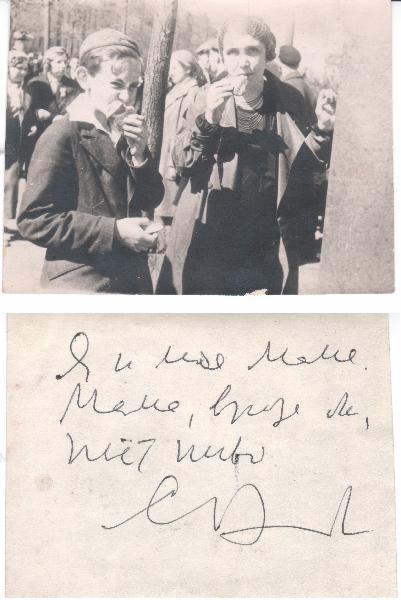 Я и моя мама.
Мама, вроде бы,
пьёт пиво